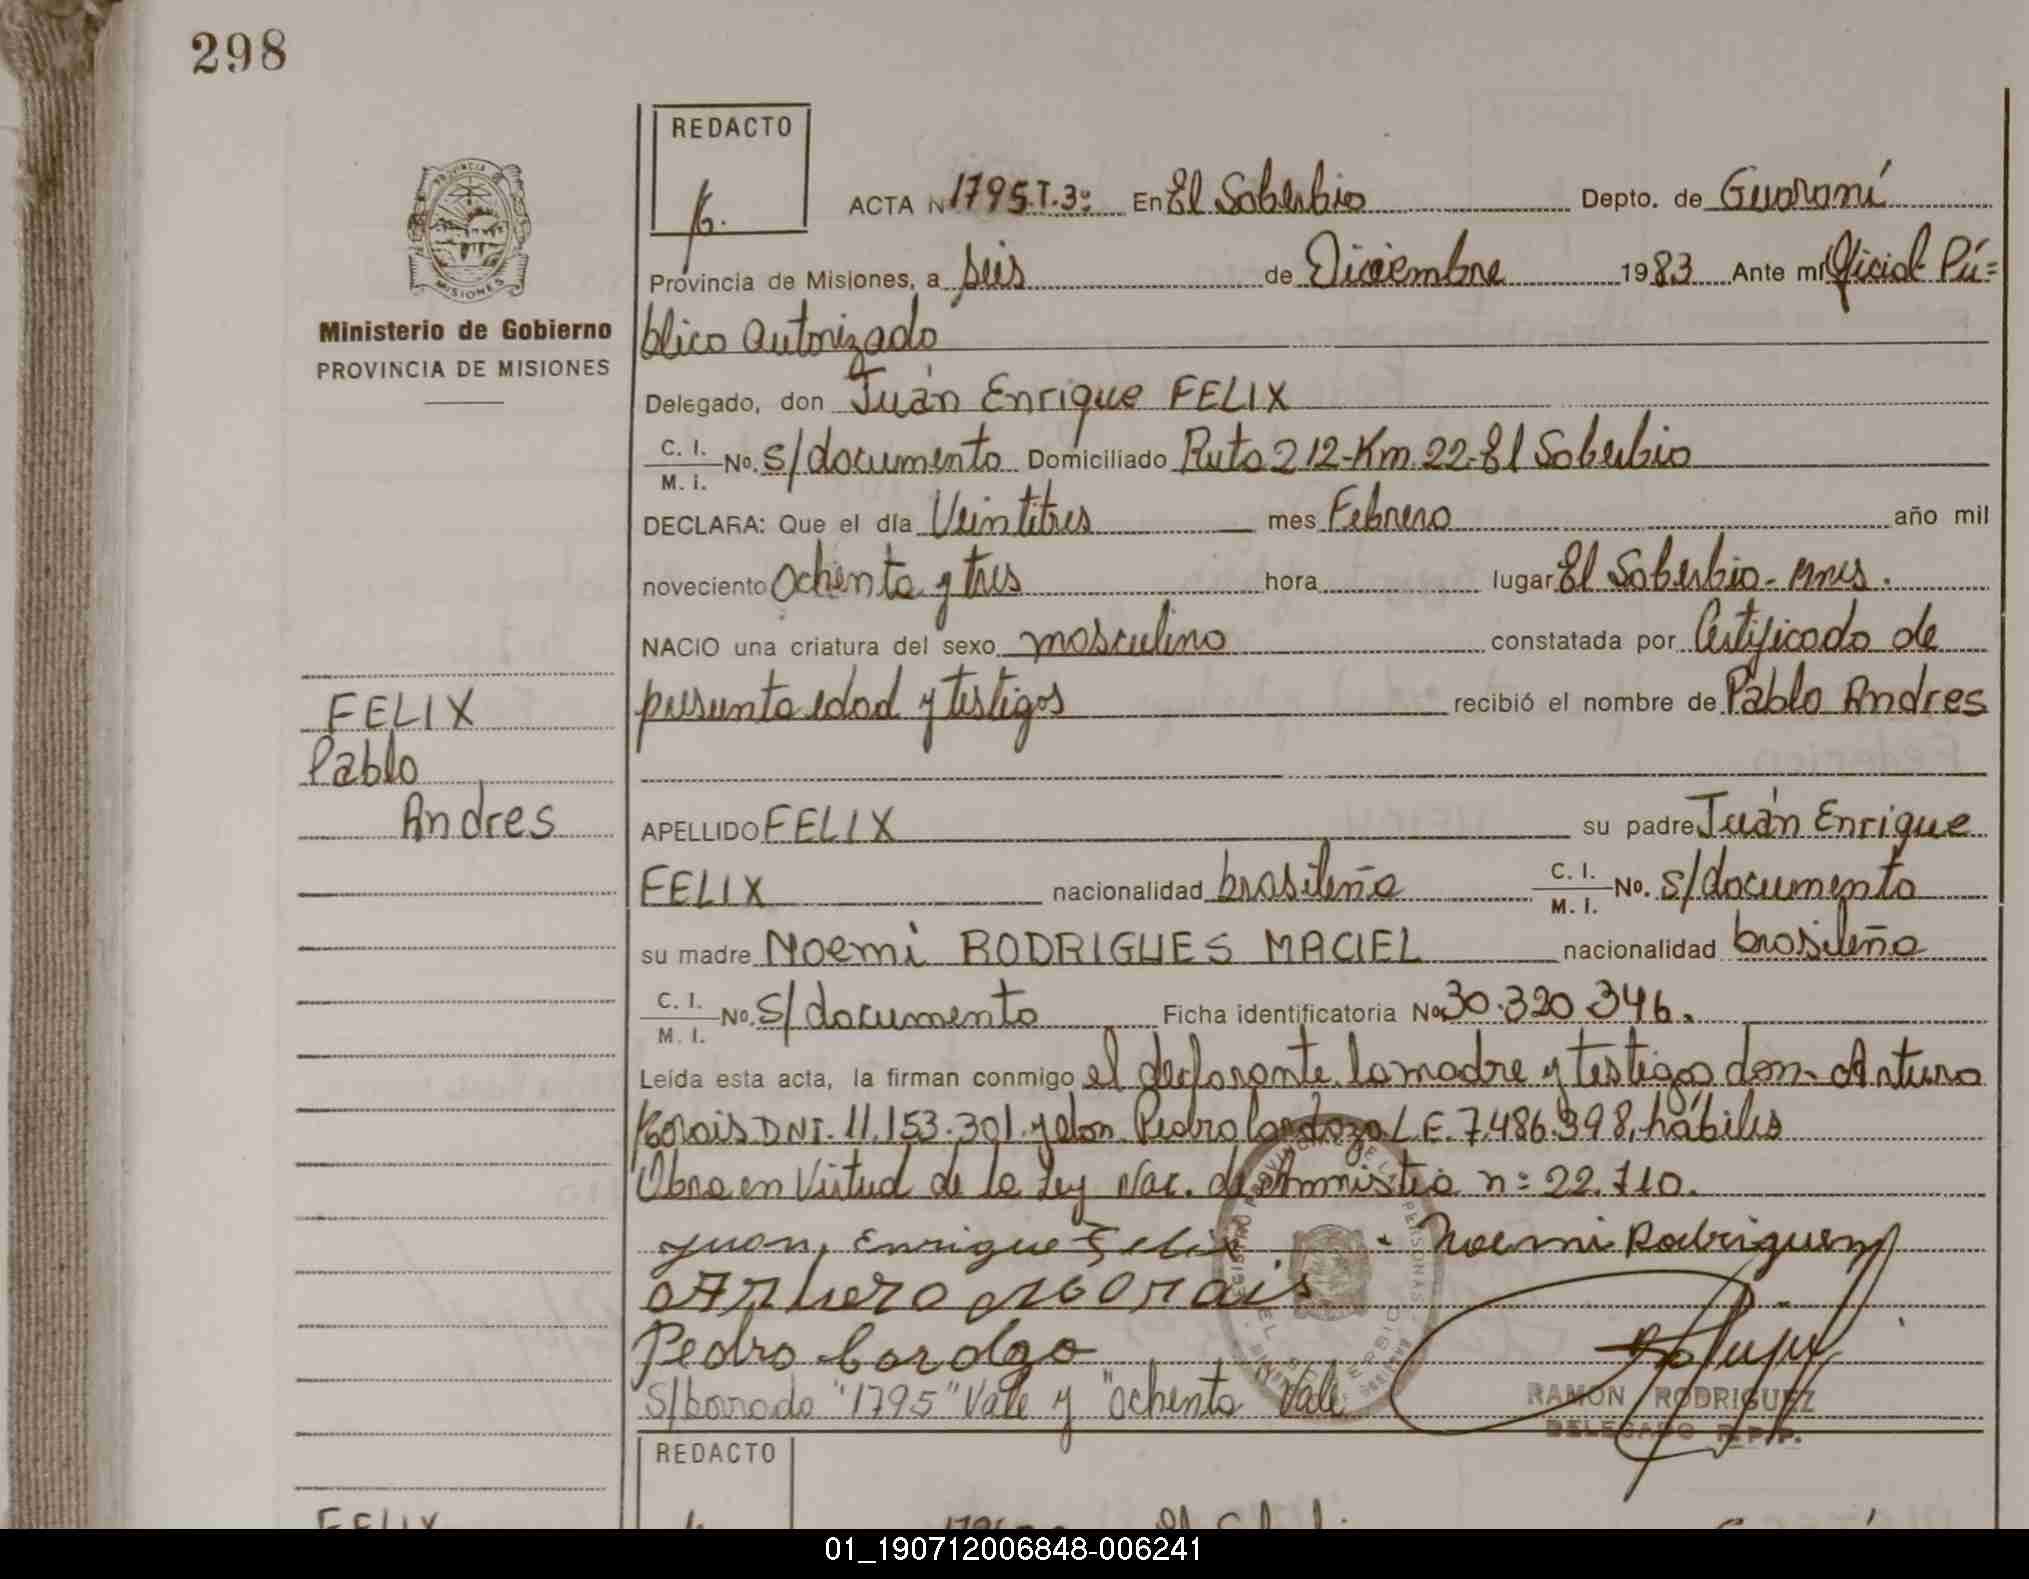 298
REDACTO
ACTA N 1795.T.3º En El Soberbio Depto. de Guaraní
Provincia de Misiones, a seis de Diciembre 1983 Ante mí Oficial Pú=
blico autorizado
Ministerio de Gobierno
PROVINCIA DE MISIONES
MISIONES
Delegado, don Juán Enrique FELIX
C. I.
M. i. No. s/documento Domiciliado Ruta 212-Km. 22-El Soberbio
DECLARA: Que el día Veintitres mes Febrero año mil
noveciento Ochenta y tres hora lugar El Soberbio- Mnes.
NACIO una criatura del sexo masculino constatada por Certificado de
presunta edad y testigos recibió el nombre de Pablo Andres
FELIX
Pablo
Andres
APELLIDO FELIX su padre Juán Enrique
FELIX nacionalidad brasileña C. I.
M. I. No. s/documento
su madre Noemi RODRIGUES MACIEL nacionalidad brasileña
C. I.
M. I. No. s/documento Ficha identificatoria No 30.320.346.
Leída esta acta, la firman conmigo el declarante, la madre y testigos don- Arturo
Morais DNI. 11.153.301. y don Pedro Cardozo L.E. 7.486.398, hábiles
Obra en Virtud de la Ley Nac. de Amnistia n= 22.710.
Juan, Enrique Felix Noemi Rodriguem
Arturo Morais
Pedro Cardozo
S/borrado "1795" Vale y "Ochenta Vale
RAMON RODRIGUEZ
DELEGADO R.P.P.
REDACTO
FELIX
01_190712006848-006241